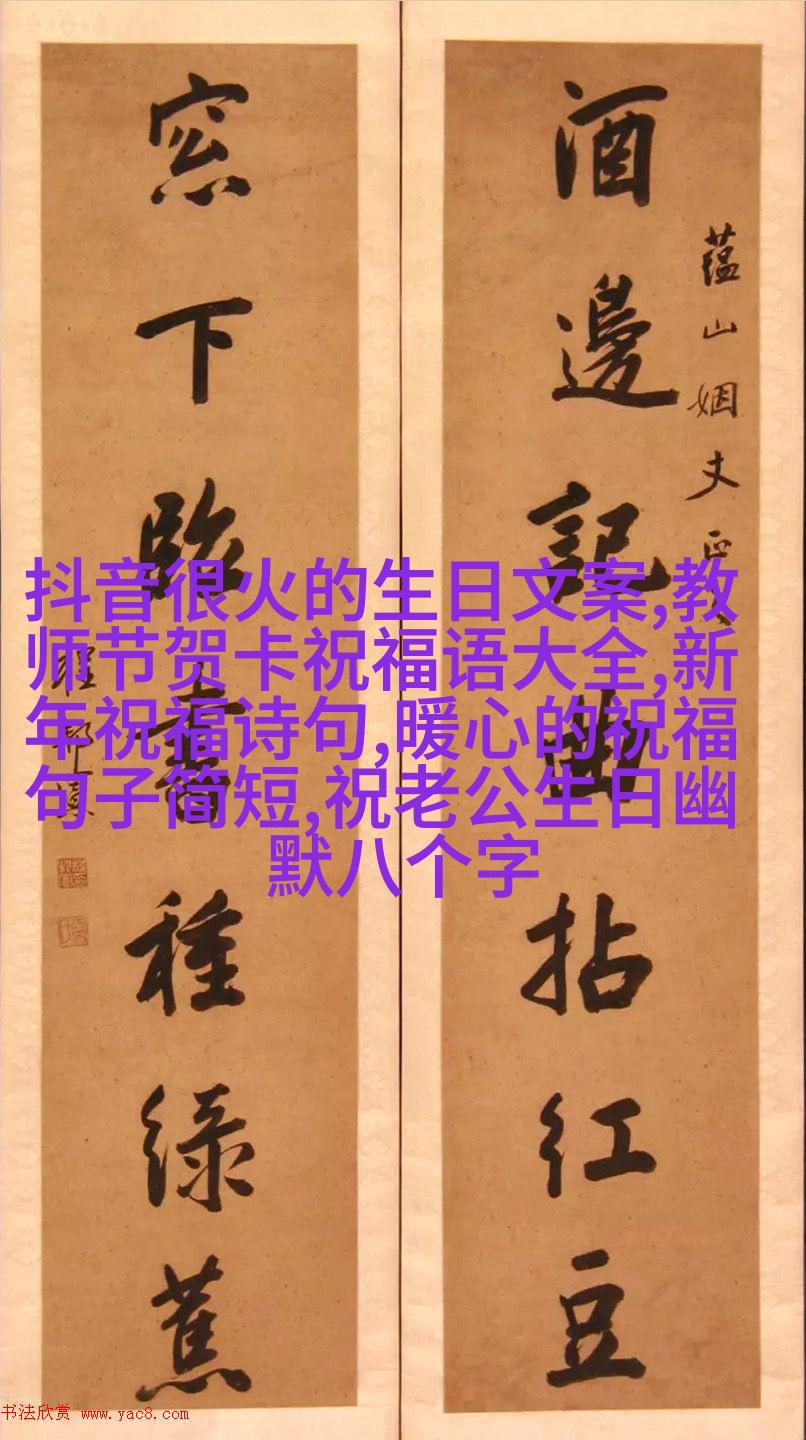 蕴山姻丈正
酒邊記曲拈紅豆
窓下臨書種緑蕉
程邦
抖音很火的生日文案,教
师节贺卡祝福语大全,新
年祝福诗句,暖心的祝福
句子简短,祝老公生日幽
默八个字
书法欣赏 www.yac8.com